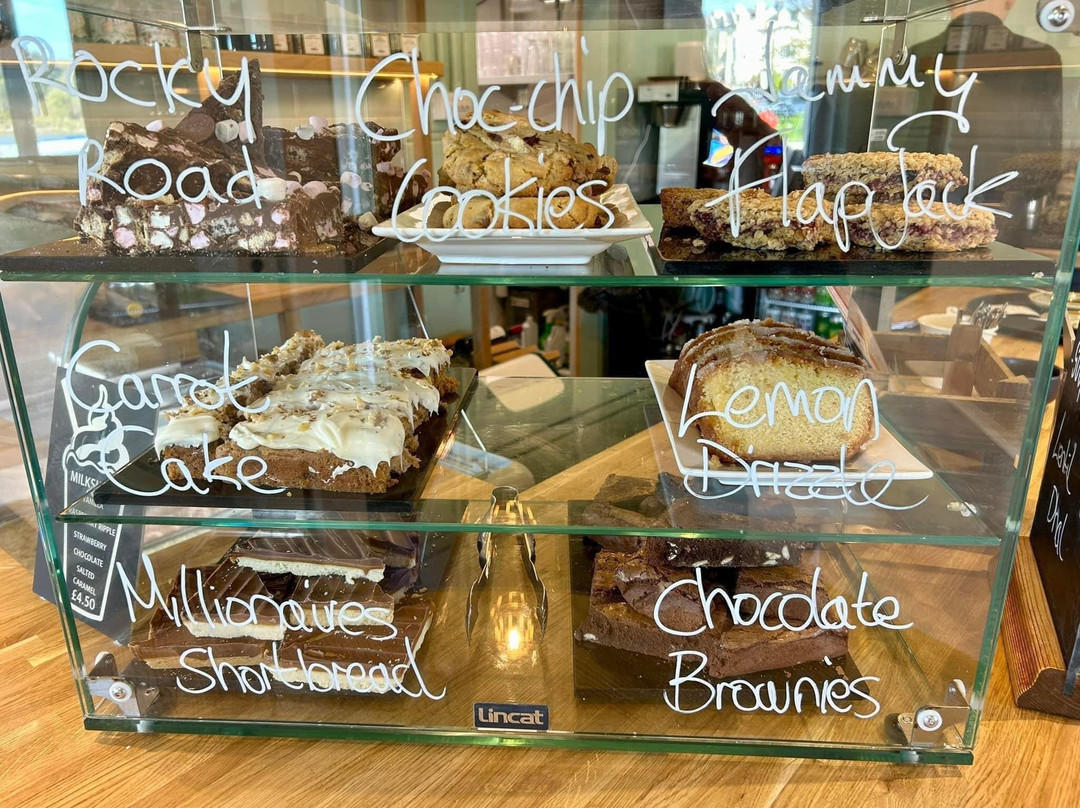 Rocky
Road
Choc-chip
Cookies
Jammy
Flapjack
Carrot
Cake
Lemon
Drizzle
Millionaires
Shortbread
Chocolate
Brownies
Lincat
STRAWBERRY
CHOCOLATE
SALTED
CARAMEL
£4.50